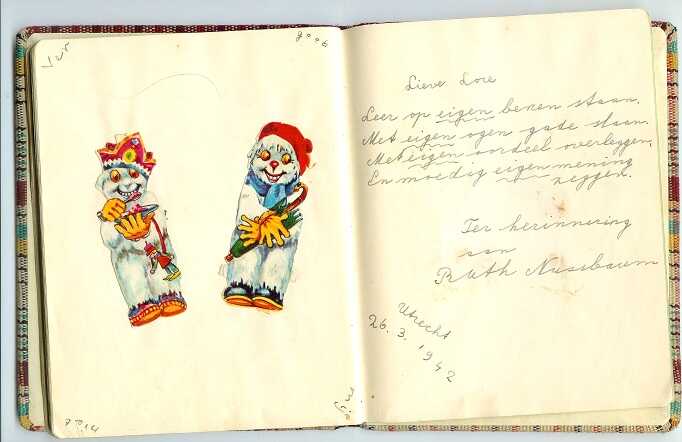 Lieve Lore
Leer op eigen benen staan.
Met eigen ogen gade slaan
Met eigen oordeel overleggen,
En moedig eigen mening
zeggen.
Ter herinnering
aan
Ruth Nussbaum
Utrecht
26. 3. 1942